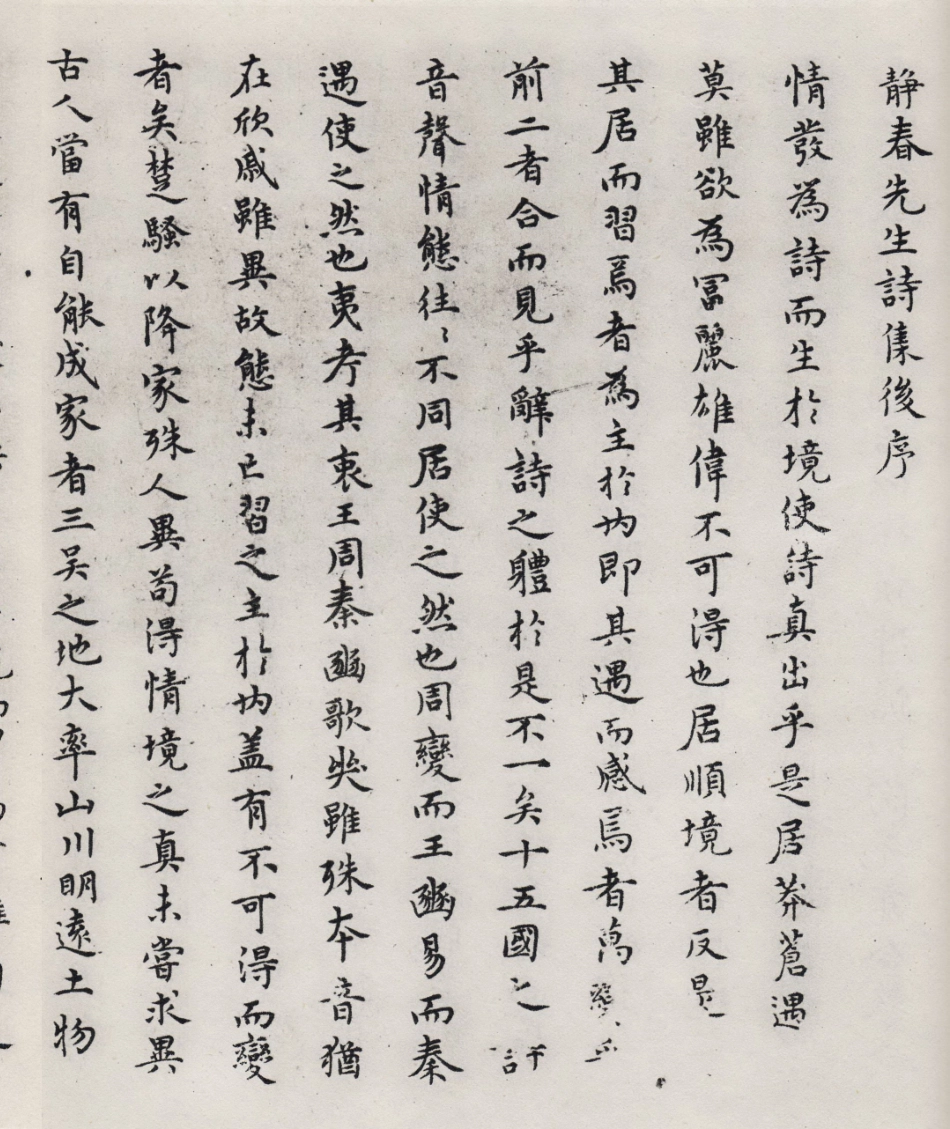 靜春先生詩集後序
情發為詩而生於境使詩真出乎是居莽蒼遇
莫雖欲為冨麗雄偉不可得也居順境者反是
其居而習焉者為主於內即其遇而感焉者萬變
前二者合而見乎辭詩之體於是不一矣十五國之詩
音聲情態往〻不同居使之然也周變而王豳易而秦
遇使之然也夷考其衷王周秦豳歌哭雖殊本音猶
在欣戚雖異故態未亡習之主於內盖有不可得而變
者矣楚騷以降家殊人異苟得情境之真未嘗求異
古人當有自能成家者三吳之地大率山川明遠土物